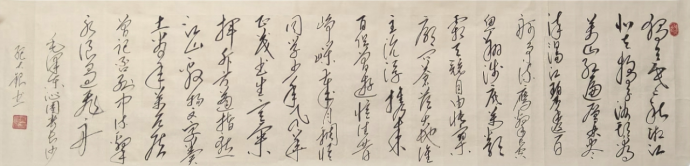 独立寒秋湘江
北去橘子洲头看
万山红遍层林尽
染漫江碧透百
舸争流鹰击长空
鱼翔浅底万类
霜天竞自由怅寥
廓问苍茫大地谁
主沉浮携来
百侣曾游忆往昔
峥嵘岁月稠恰
同学少年风华
正茂书生意气
挥斥方遒指点
江山激扬文字粪
土当年万户侯
曾记否到中流击
水浪遏飞舟
毛泽东沁园春长沙